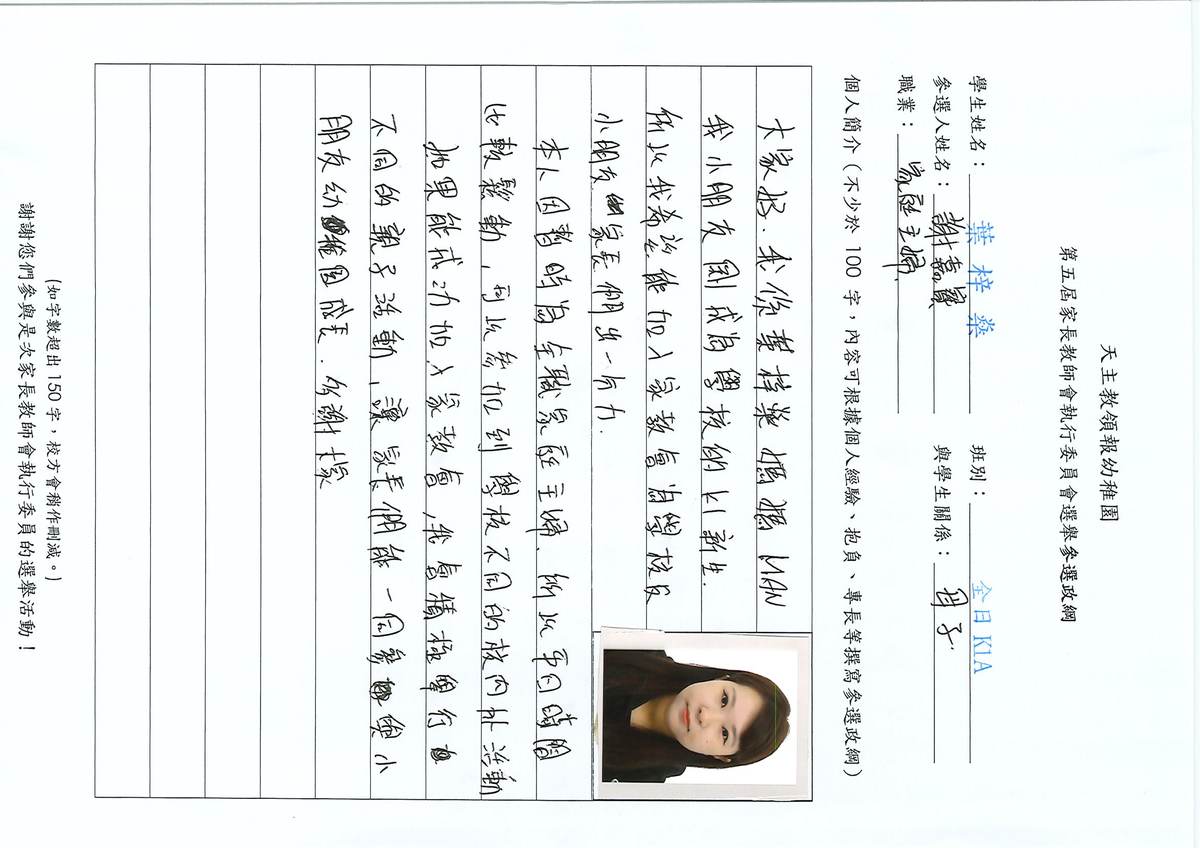 天主教領報幼稚園
第五屆家長教師會執行委員會選舉參選政綱
學生姓名：葉梓燊 班別：全日K1A
參選人姓名：謝嘉寶 與學生關係：母子
職業：家庭主婦
個人簡介（不少於 100 字，內容可根據個人經驗、抱負、專長等撰寫參選政綱）
大家好．我係葉梓燊媽媽 MAN
我小朋友剛成為學校的K1新生．
所以我希望能加入家教會為學校及
小朋友家長們出一分力．
本人因暫時為全職家庭主婦．所以平日時間
比較鬆動，可以參加到學校不同的校內外活動
如果能成功加入家教會，我會積極舉行
不同的親子活動，讓家長們能一同參與小
朋友幼稚園成長．多謝大家
(如字數超出 150 字，校方會稍作刪減。)
謝謝您們參與是次家長教師會執行委員的選舉活動！